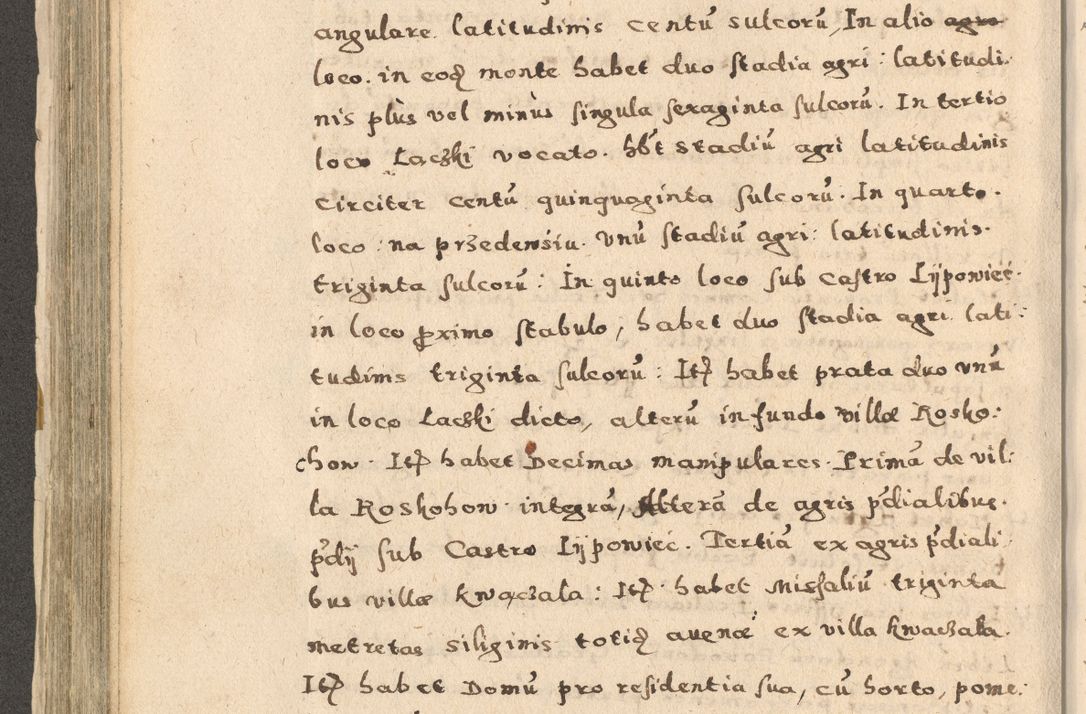 angulare. latitudinis centū sulcorū, In alio agro
loco. in eoꝗ monte habet duo stadia agri : latitudi:
nis plùs vel minùs singula sexaginta sulcorū. In tertio
loco Łaczki vocato. hbt stadiū agri latitudinis
circiter centū quinquaginta sulcorū. In quarto.
loco : na przedewsiu. Vnū stadiū agri: latitudinis.
triginta sulcorū : In quinto loco sub Castro Lÿpowieć.
in loco ꝓximo stabulo, habet duo stadia agri. lati:
tudinis triginta sulcorū : Itꝫ habet prata duo vnū
in loco Łaczki dicto, alterū in fundo villæ Rosko:
chow. Itꝫ habet Decimas manipulares. Primā de vil:
la Roskohow integrā, Alterā de agris p̄dialibus.
p̄dÿ sub Castro Lÿpowiec. Tertiā ex agris p̄diali
bus villæ Kwaczala : Itꝫ habet Missaliū triginta
metretas siliginis totiꝗ auenæ ex villa Kwaczala.
Itꝫ habet Domū pro residentia sua, cū horto, pome: